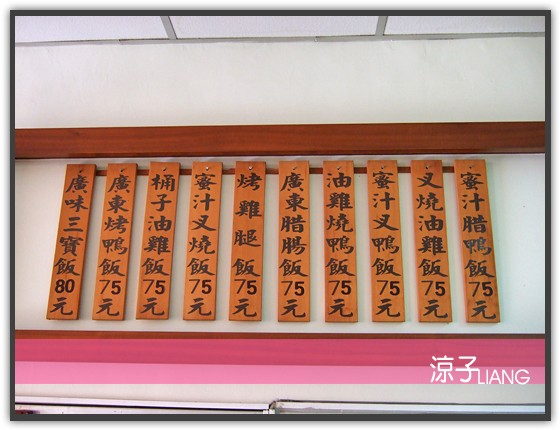 廣味三寶飯80元
廣東烤鴨飯75元
桶子油雞飯75元
蜜汁叉燒飯75元
烤雞腿飯75元
廣東腊腸飯75元
油雞燒鴨飯75元
蜜汁叉鴨飯75元
叉燒油雞飯75元
蜜汁腊鴨飯75元
涼子LIANG